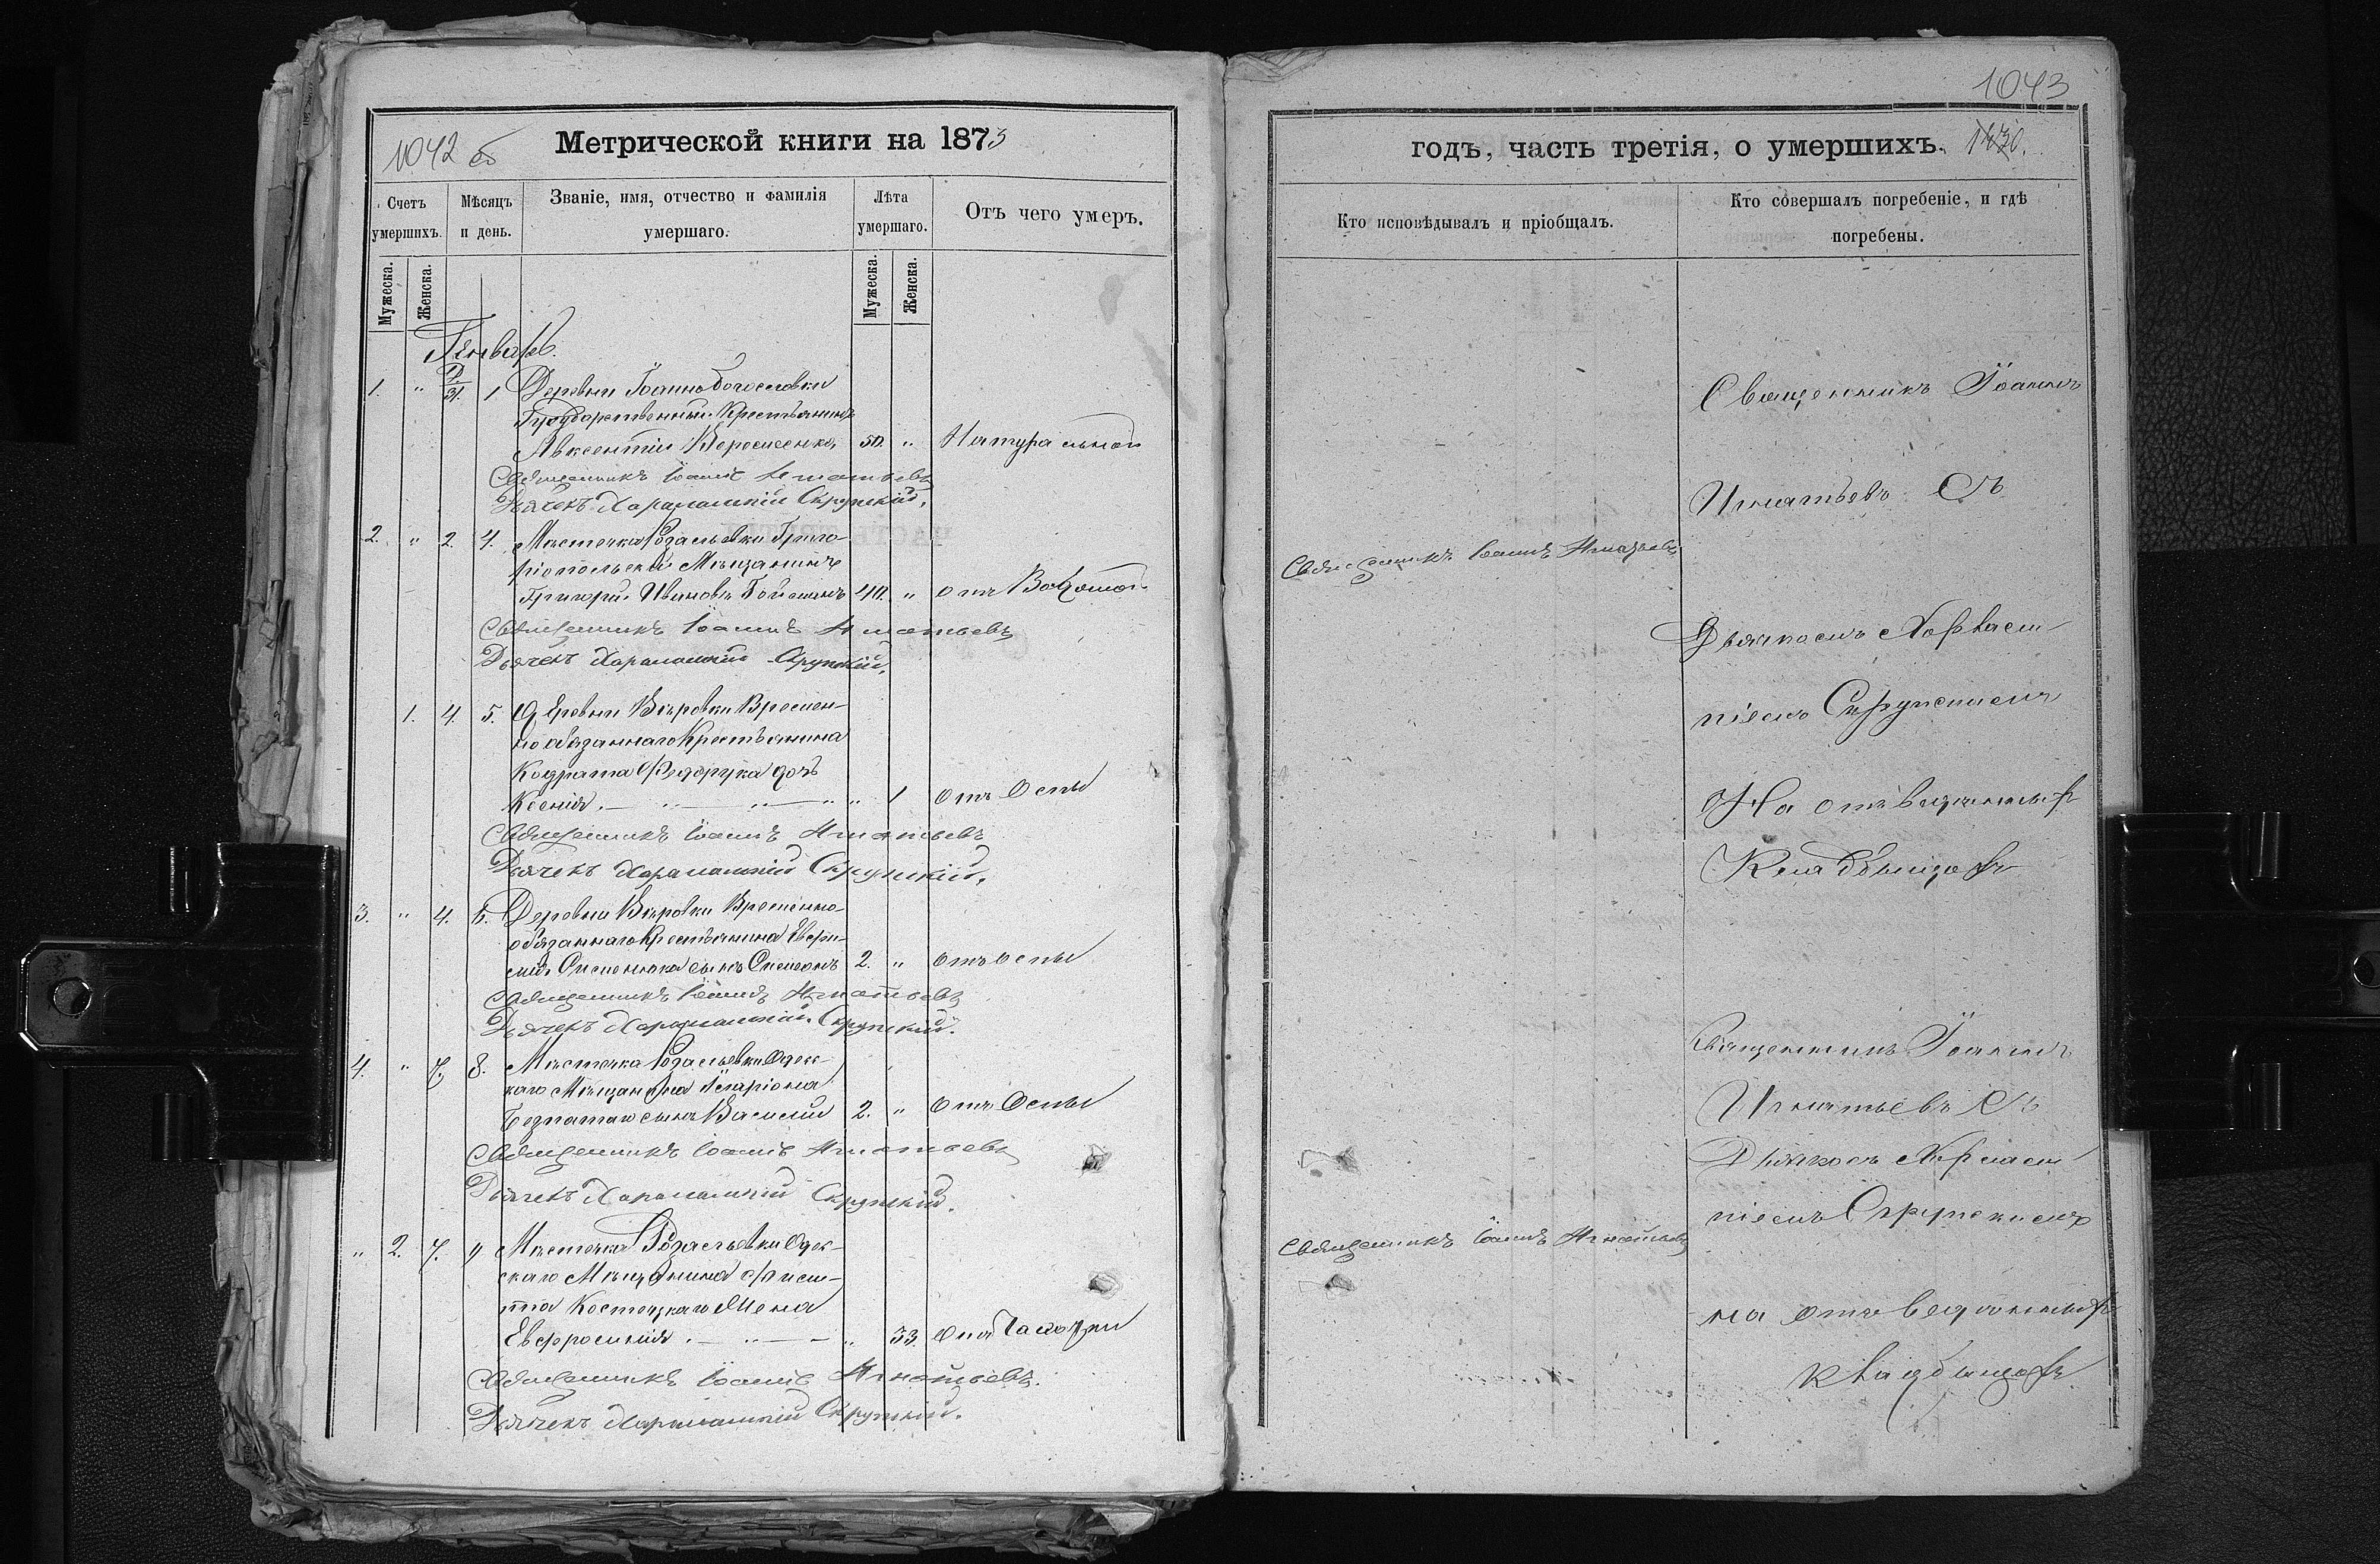 1042 об
Метрической книги на 1873
Счетъ умершихъ.
Мѣсяцъ и день.
Званіе, имя, отчество и фамилія умершаго.
Лѣта умершаго.
Отъ чего умеръ.
Мужеска.
Женска.
Мужеска.
Женска.
Генварь.
1. " 1 Деревни Іоанно Богословки
Государственный Крестьянинъ
Авксентій 50. " Натуральной
Священникъ Іоаннъ Игнатьевъ
Дьячекъ Харлампій Скрупскій.
2. " 2. 4. Мѣстечка Розальевки Григо-
ріопольскій Мѣщанинъ
Григорій Ивановъ 40. " отъ
Священникъ Іоаннъ Игнатьевъ
Дьячекъ Харлампій Скрупскій.
1. 4. 5. Деревни Вѣровки Времен-
но обязаннаго Крестьянина
Кодрата Федорука дочь
Ксенія. " 1 отъ Оспы
Священникъ Іоаннъ Игнатьевъ
Дьячекъ Харлампій Скрупскій.
3. " 4. 6. Деревни Вѣровки Временно-
обязаннаго Крестьянина
сынъ Симеонъ 2. " отъ оспы
Священникъ Іоаннъ Игнатьевъ
Дьячекъ Харлампій Скрупскій.
4. " 7. 8. Мѣстечка Розальевки Одес-
каго Мѣщанина Иларіона
сынъ Василій 2. " отъ Оспы
Священникъ Іоаннъ Игнатьевъ
Дьячекъ Харлампій Скрупскій.
" 2. 7. 9 Мѣстечка Розальевки Одес-
скаго Мѣщанина
Костецкаго Жена
Евфросинія. " 33. отъ Чахотки
Священникъ Іоаннъ Игнатьевъ.
Дьячекъ Харлампій Скрупскій.
1043
годъ, часть третія, о умершихъ.
Кто исповѣдывалъ и пріобщалъ.
Кто совершалъ погребеніе, и гдѣ погребены.
Священникъ Іоаннъ
Игнатьевъ Съ
Священникъ Іоаннъ Игнатьевъ
Дьячкомъ Харлам
піемъ Скрупскимъ
На отведенномъ
Кладбищѣ
Священникъ Іоаннъ
Игнатьевъ Съ
Дьячкомъ Харлам
піемъ Скрупскимъ
Священникъ Іоаннъ Игнатьевъ
на отведенномъ
кладбищѣ